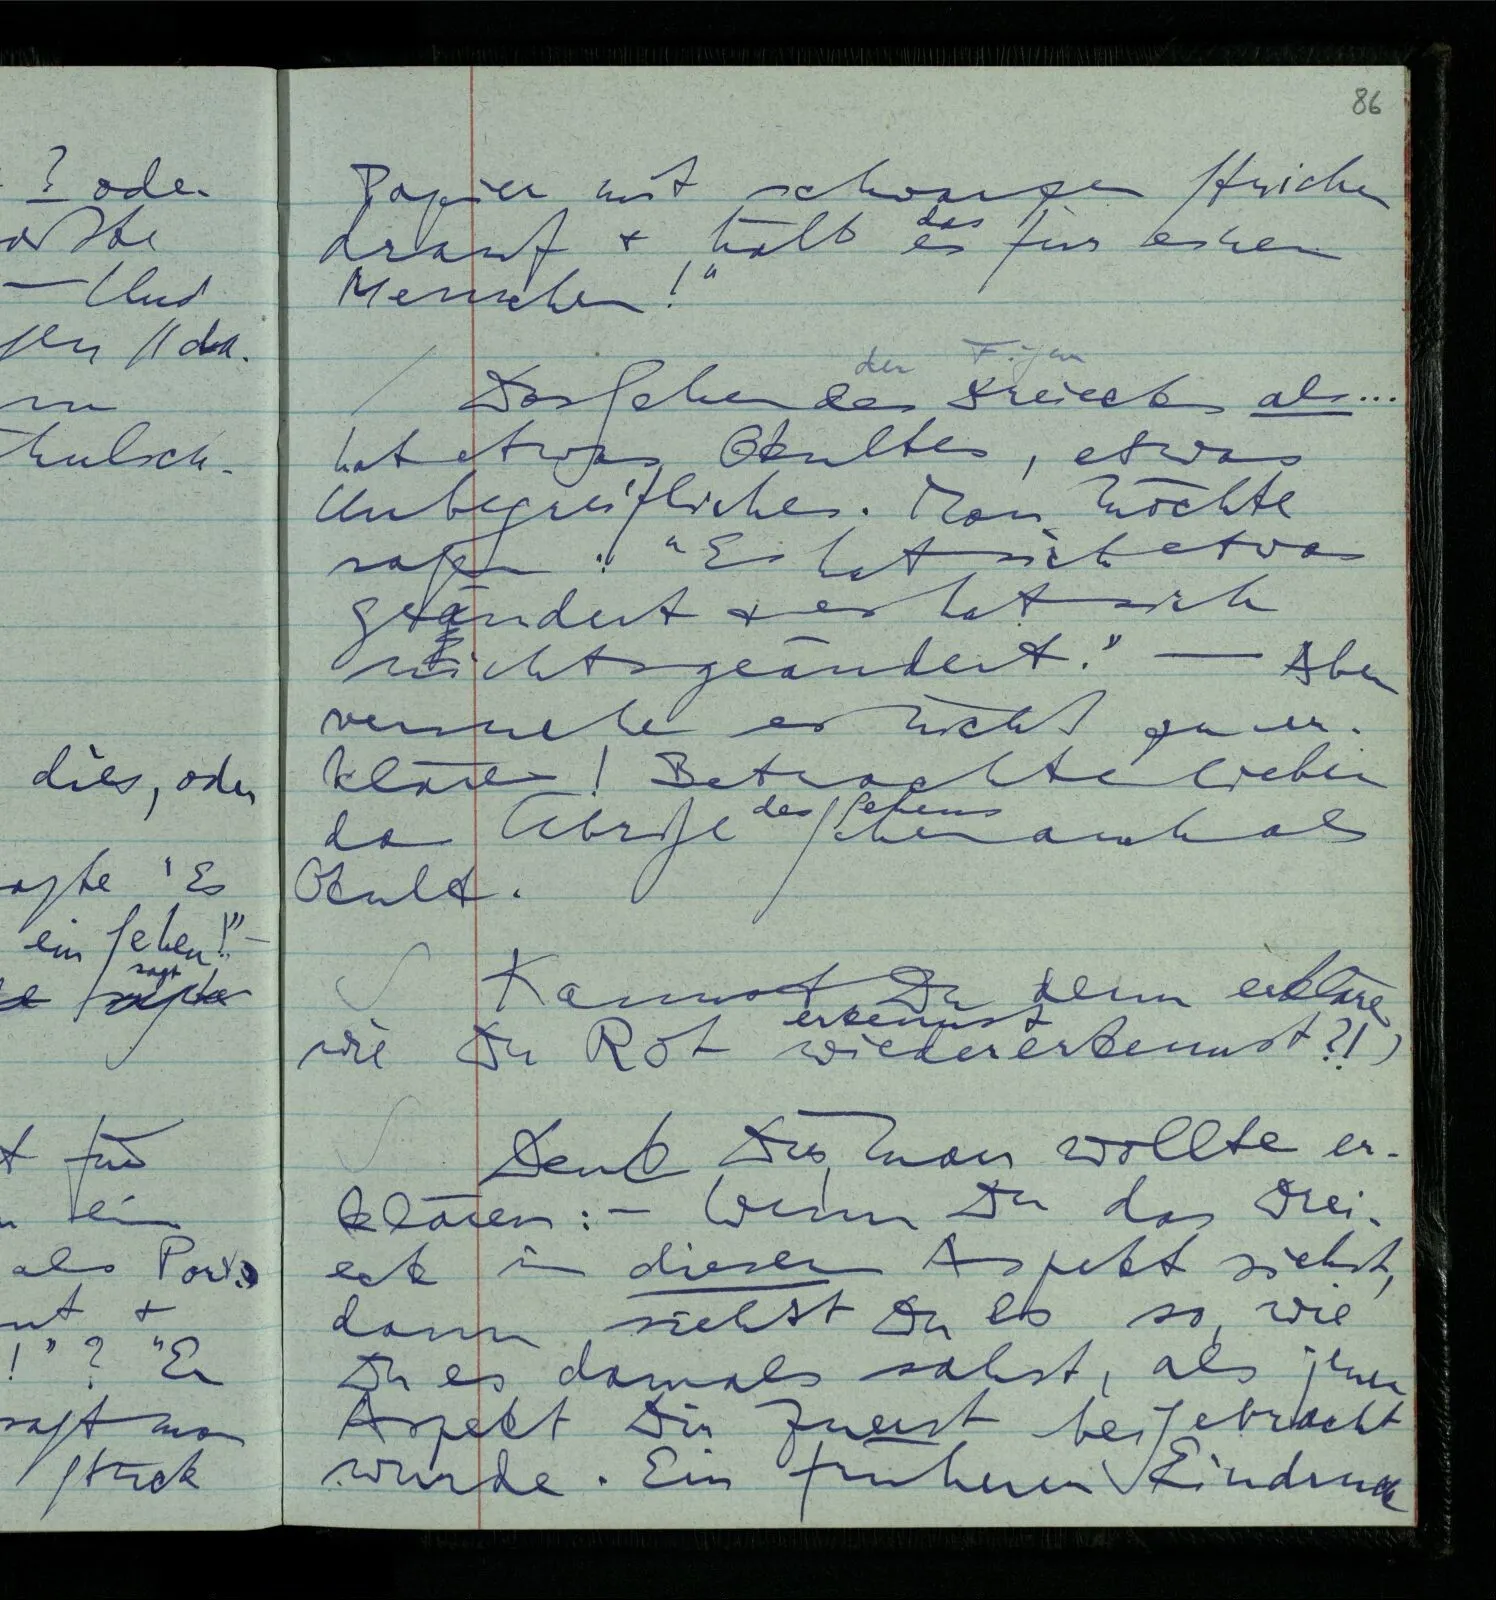 86
? oder
Und
da.
dies, oder
"Es
ein Sehen!" –
sagt
für
ein
als
+
!"? "Er
sagt man
Stück
Papier mit schwarzen Strichen
drauf + hält es das für einen
Menschen!"
/ Das Sehen des der Dreiecks Figur als...
hat etwas Okultes, etwas
Unbegreifliches. Man möchte
sagen: "Es hat sich etwas
geändert + es hat sich
nichts geändert." — Aber
versuche es nicht zu er-
klären! Betrachte lieber
das übrige Sehen des Sehens auch als
Okult.
Kannst Du denn erklären
wie Du Rot wiedererkennst erkennst?!)
Denk Dir, man wollte er-
klären: – Wenn Du das Drei-
eck in diesem Aspekt siehst,
dann siehst Du es so, wie
Du es damals sahst, als jener
Aspekt Dir zuerst beigebracht
wurde. Ein früherer Eindruck